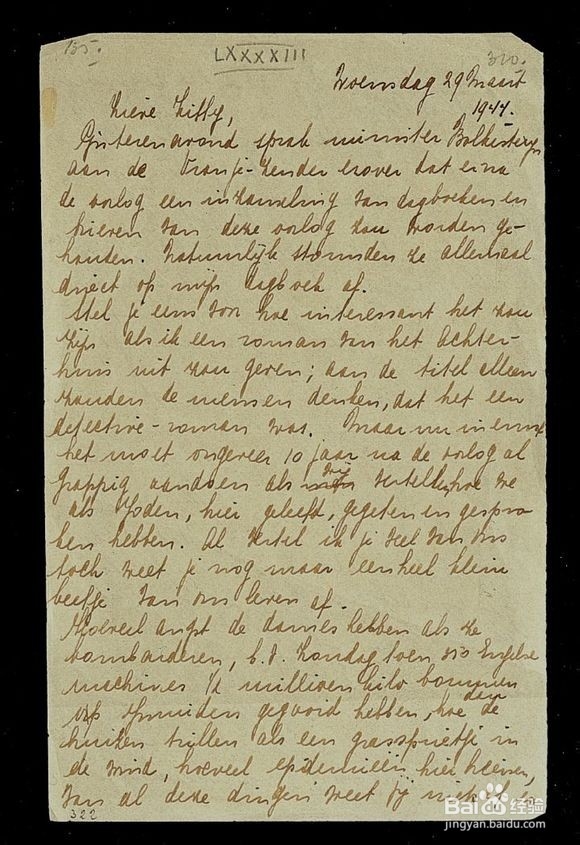 135.
LXXXXIII
320.
Woensdag 29 Maart
1944.
Lieve Kitty,
Gisterenavond sprak minister Bolkesteyn
aan de Oranje-zender erover dat er na
de oorlog een inzameling van dagboeken en
brieven van deze oorlog zou worden ge-
houden. Natuurlijk stormden ze allemaal
direct op mijn dagboek af.
Stel je eens voor hoe interessant het zou
zijn als ik een roman van het Achter-
huis uit zou geven; aan de titel alleen
zouden de mensen denken, dat het een
detective-roman was. Maar nu in ernst
het moet ongeveer 10 jaar na de oorlog al
grappig aandoen als wij vertellen hoe we
als Joden, hier geleefd, gegeten en gespro-
ken hebben. Al vertel ik je veel van ons
toch weet je nog maar een heel klein
beetje van ons leven af.
Hoeveel angst de dames hebben als ze
bombarderen, b.v. Zondag toen 350 Engelse
machines ½ millioen kilo bommen
op Ijmuiden gegooid hebben, hoe dan de
huizen trillen als een grassprietje in
de wind, hoeveel epidemieën hier heersen,
van al deze dingen weet jij niets
322
Baidu 经验
jingyan.baidu.com